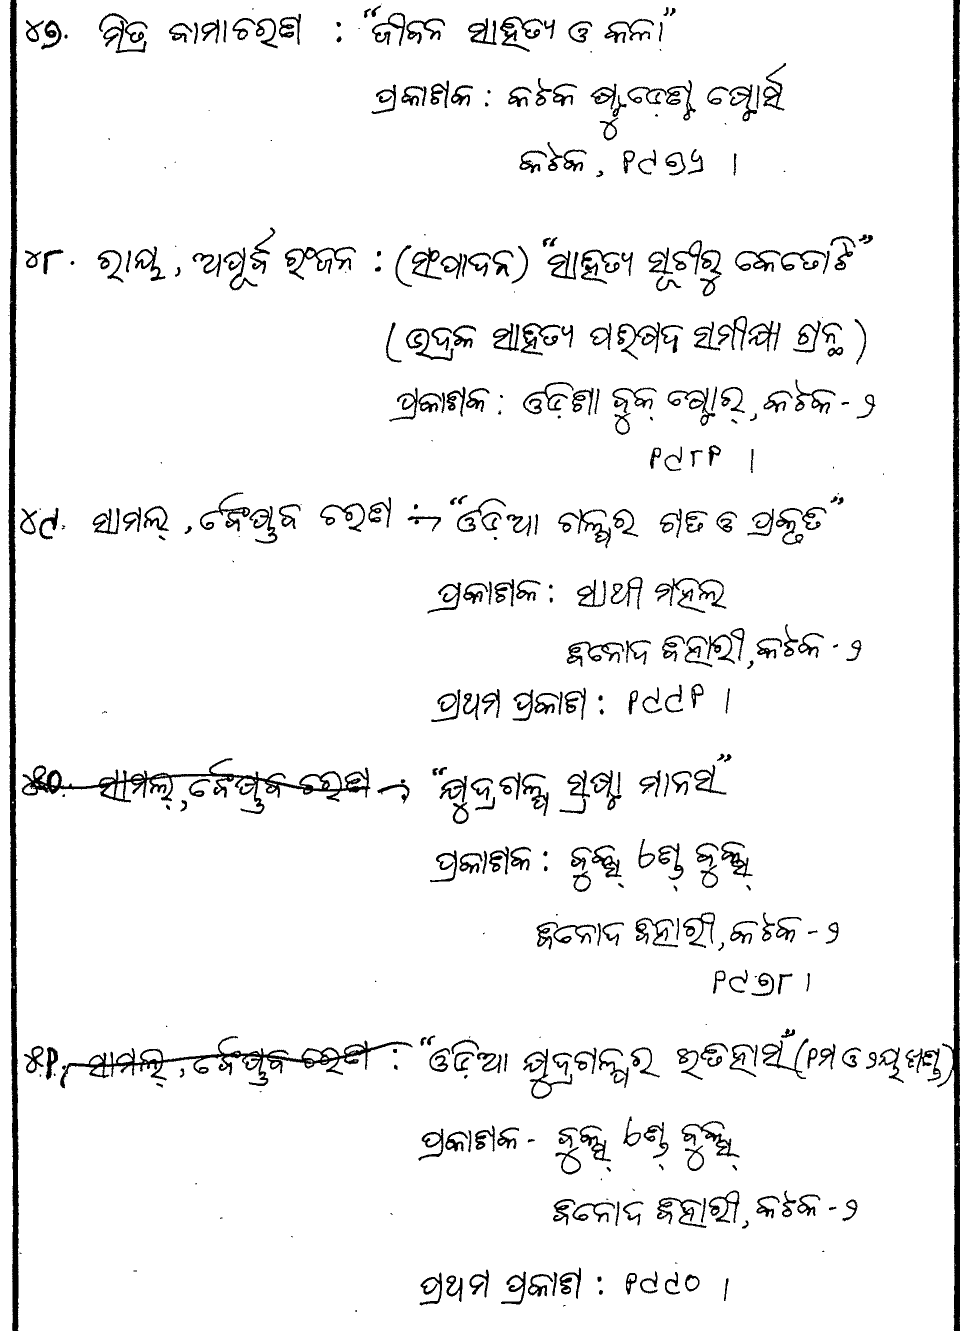 ୪୭. ମିତ୍ର ବାମାଚରଣ : “ଜୀବନ ସାହିତ୍ୟ ଓ କଳା”
ପ୍ରକାଶକ : କଟକ ଷ୍ଟୁଡେଣ୍ଟ ଷ୍ଟୋର୍ସ
କଟକ, ୧୯୭୫ ।
୪୮. ରାୟ, ଅପୂର୍ବ ରଂଜନ : (ସଂପାଦନ) “ସାହିତ୍ୟ ସୂଚୀରୁ କେତୋଟି”
(ଭଦ୍ରକ ସାହିତ୍ୟ ପରିଷଦ ସମୀକ୍ଷା ଗ୍ରନ୍ଥ)
ପ୍ରକାଶକ : ଓଡ଼ିଶା ବୁକ୍ ଷ୍ଟୋର୍, କଟକ - ୨
୧୯୮୧ ।
୪୯. ସାମଲ୍, ବୈଷ୍ଣବ ଚରଣ :- “ଓଡ଼ିଆ ଗଳ୍ପର ଗତି ଓ ପ୍ରକୃତି”
ପ୍ରକାଶକ : ସାଥୀ ମହଲ
ବିନୋଦ ବିହାରୀ, କଟକ - ୨
ପ୍ରଥମ ପ୍ରକାଶ : ୧୯୯୧ ।
୫୦. ସାମଲ୍, ବୈଷ୍ଣବ ଚରଣ -: “କ୍ଷୁଦ୍ରଗଳ୍ପ ସ୍ରଷ୍ଟା ମାନସ”
ପ୍ରକାଶକ : ବୁକ୍ସ୍ ଏଣ୍ଡ୍ ବୁକ୍ସ୍
ବିନୋଦ ବିହାରୀ, କଟକ - ୨
୧୯୭୮ ।
୫୧, ସାମଲ୍, ବୈଷ୍ଣବ ଚରଣ : “ଓଡ଼ିଆ କ୍ଷୁଦ୍ରଗଳ୍ପର ଇତିହାସ” (୧ମ ଓ ୨ୟ ଖଣ୍ଡ)
ପ୍ରକାଶକ - ବୁକ୍ସ୍ ଏଣ୍ଡ୍ ବୁକ୍ସ୍
ବିନୋଦ ବିହାରୀ, କଟକ - ୨
ପ୍ରଥମ ପ୍ରକାଶ : ୧୯୯୦ ।